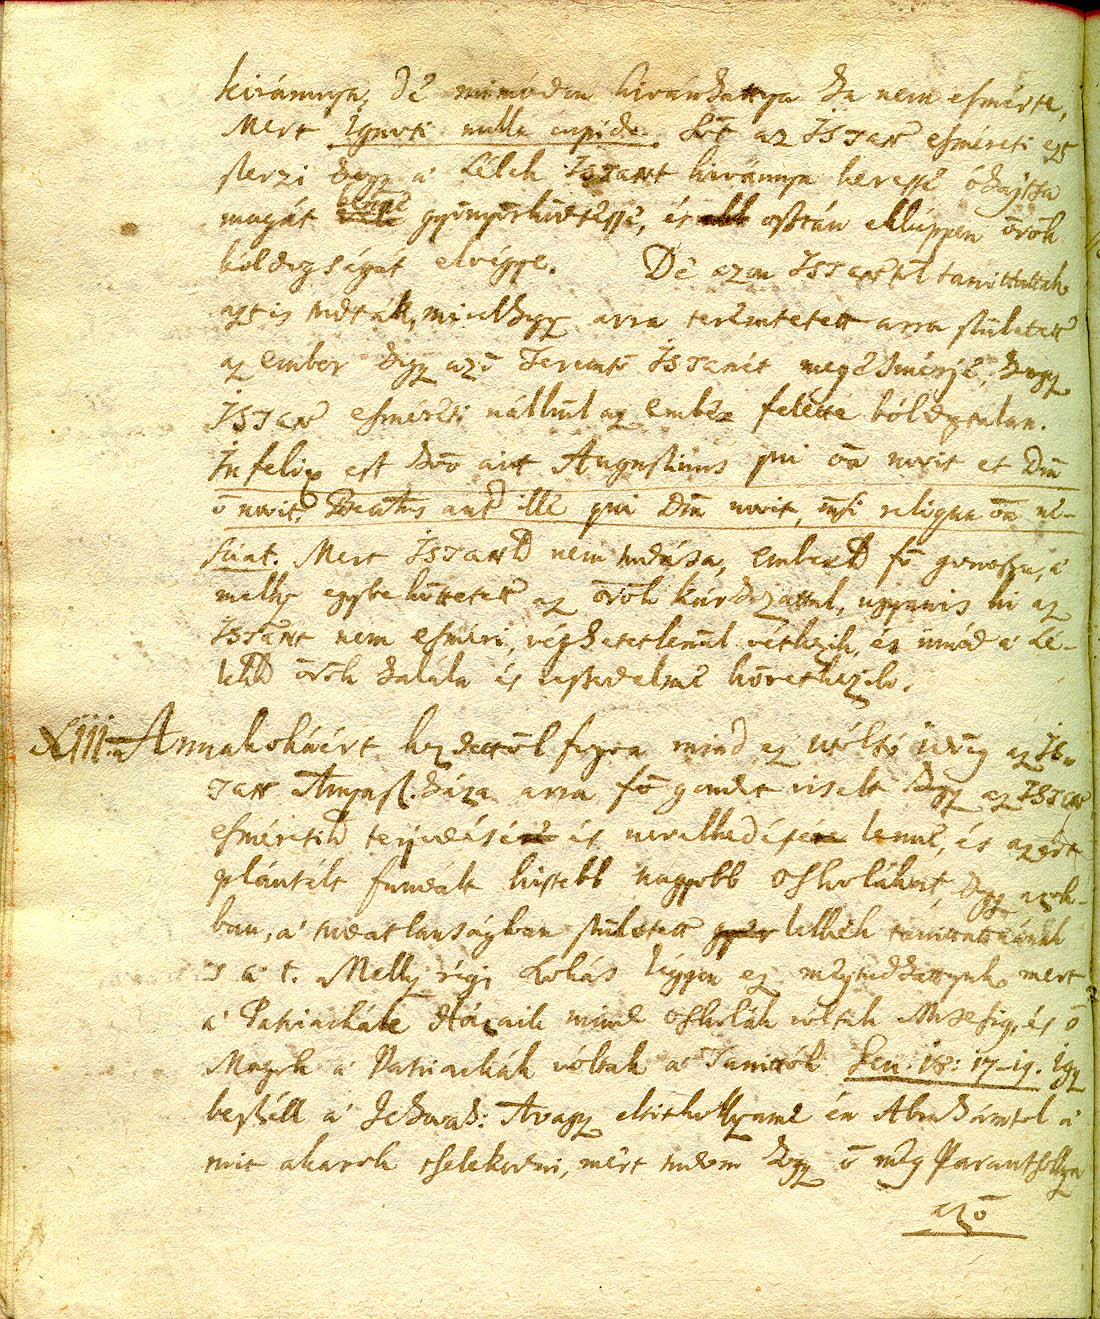 kivánnya, Dé mimódon kivánhattya ha nem esmérte,
Mert Ignoti nulla cupido. Sőt az ISTAN esméreti ezt
szerzi hogy a' Lélek ISTANt kivánnya keresse óhajtsa
magát benne gyönyörködtesse, és osztán elképpen örök
bóldogságát elvégye. Dé azon ISTANtul tanittattak
azt is tudták, mivelhogy arra teremtetett arra született
az ember hogy azö Teremtö ISTenét megésmérje, hogy
ISTAN esméreti nállkül az ember felette bóldogtalan.
Infelix est hoō ait Augustinus qui oīa novit et Dm̄
ō novit, Beatus aut ille qui Dm̄ novit, etsi reliqua oīa ne-
sciat. Mert ISTANnak nem tudása, embernek fö gonossza, a'
melly egybe köttetett az örök kárhozattal, ugyanis ki az
ISTANt nem esméri, véghetetlenül vétkezik, és imád a' Lé-
leknek örök halála és veszedelme következik.
XIII. Annakokáért kezdettöl fogva mind ez utólsó üdöig az IS-
TAN Anyasz.háza arra fö gondot viselt hogy az ISTAN
esméretinek terjedésére és nevelkedésére lenne, és azért
plántált fundált kissebb nagyobb oskolákat, hogy azok-
ban, a' tudatlanságban született lelkek tanittatnának
s a' t. Melly régi szokás légyen ez megtudhattyuk mert
a' Patriarchák Házaik mind oskolák vóltak Mosesig, és ö
Magok a' Patriarchák vóltak a' Tanittók Gen. 18: 17-19. Igy
beszéll a' Jehovah: Avagy eltitkollyamé én Abrahámtol a'
mit akarok tselekedni, mert tudom hogy ö még Parantsollya
azö